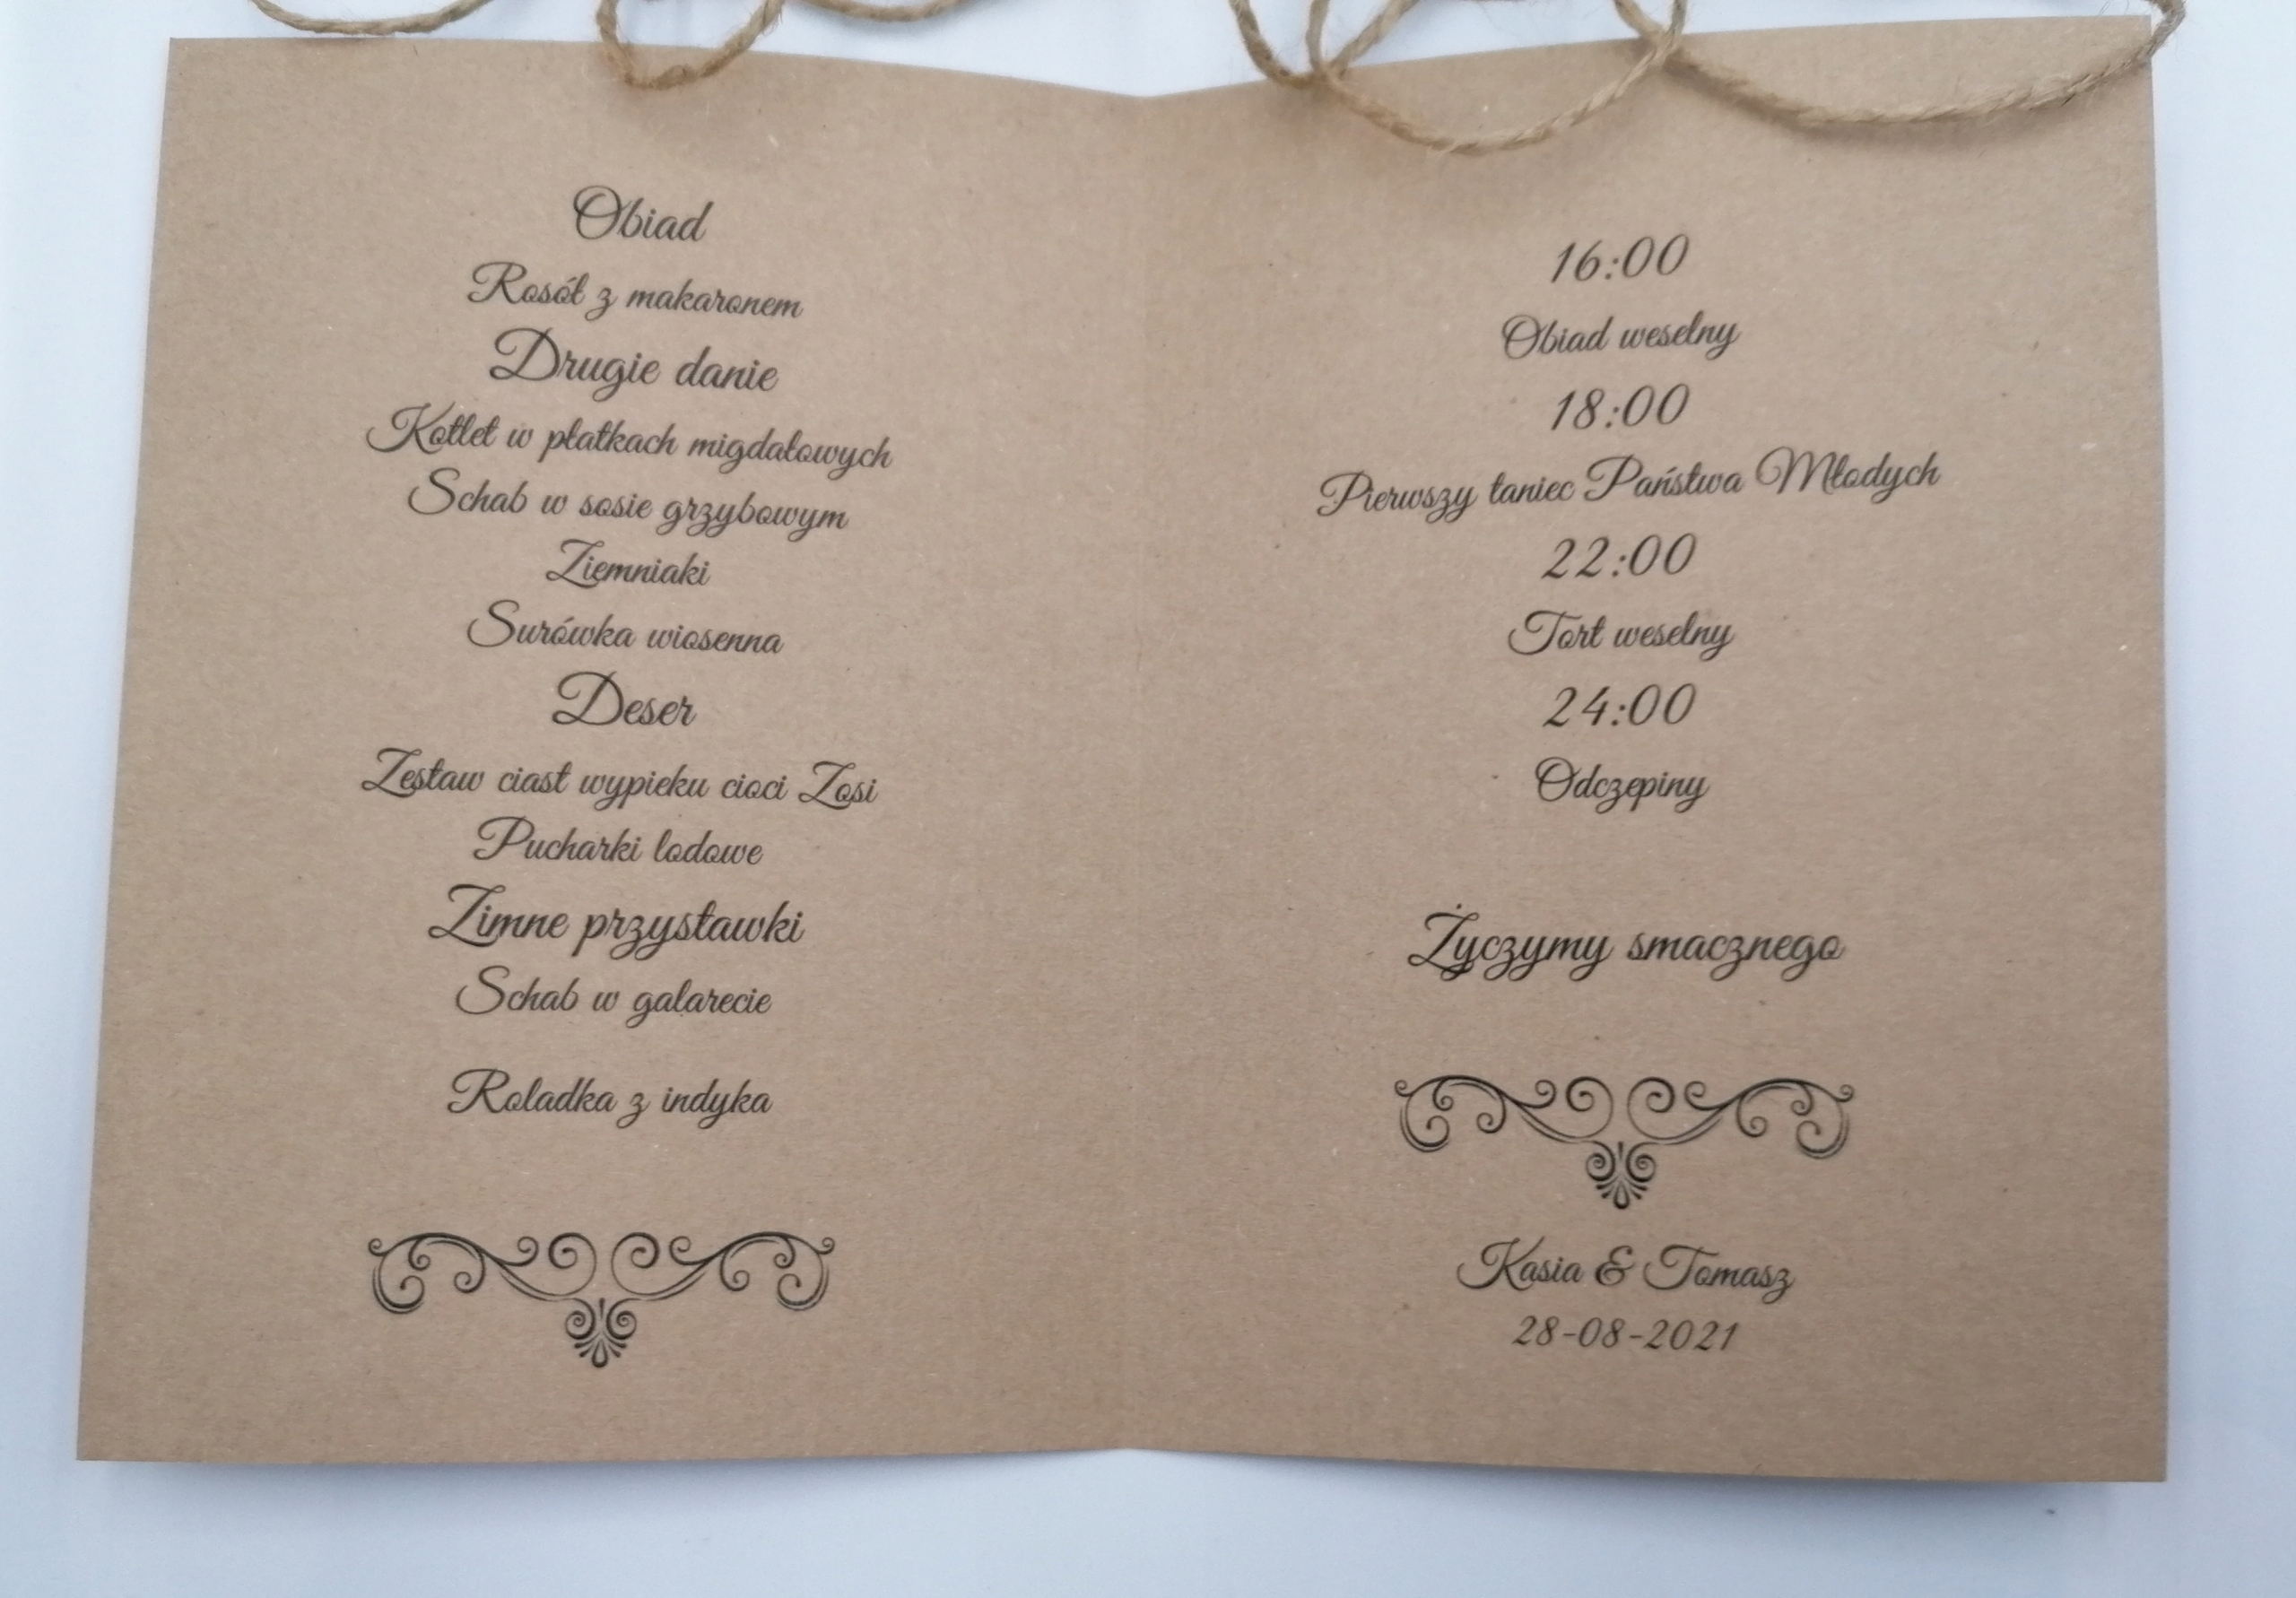 Obiad
Rosół z makaronem
Drugie danie
Kotlet w płatkach migdałowych
Schab w sosie grzybowym
Ziemniaki
Surówka wiosenna
Deser
Zestaw ciast wypieku cioci Zosi
Pucharki lodowe
Zimne przystawki
Schab w galarecie
Roladka z indyka
16:00
Obiad weselny
18:00
Pierwszy taniec Państwa Młodych
22:00
Tort weselny
24:00
Odczepiny
Życzymy smacznego
Kasia & Tomasz
28-08-2021